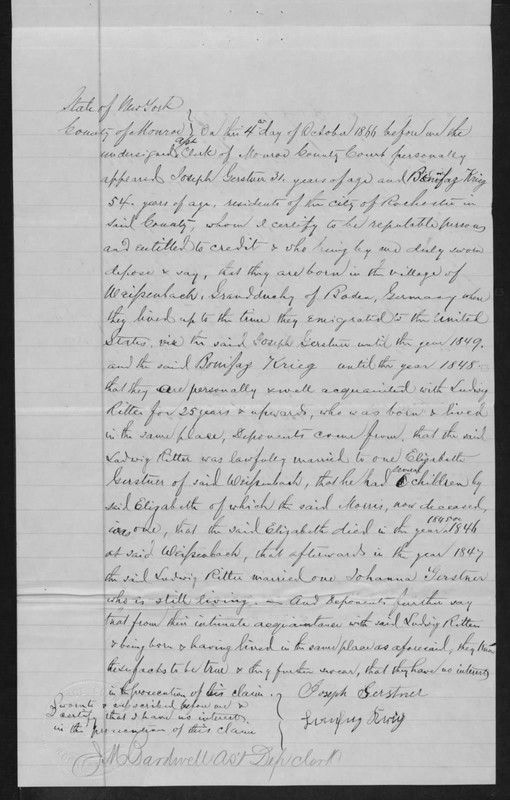 State of New York
County of Monroe } On this 4th day of October 1866 before me the
undersigned Asst Clerk of Monroe County Court personally
appeared Joseph Gerstner 31. years of age and Bonifaz Krieg
54. years of age, residents of the city of Rochester in
said County, whom I certify to be reputable persons
and entitled to credit & who being by me duly sworn
depose & say, that they are born in the village of
Weißenbach, Grandduchy of Baden, Germany where
they lived up to the time they emigrated to the United
States, viz the said Joseph Gerstner until the year 1849.
and the said Bonifaz Krieg until the year 1848
that they are personally & well acquainted with Ludwig
Ritter for 25 years & upwards, who was born & lived
in the same place, Deponents come from, that the said
Ludwig Ritter was lawfully married to one Elizabeth
Gerstner of said Weißenbach, that he had several children by
said Elizabeth of which the said Morris, now deceased,
was one, that the said Elizabeth died in the year 1845 or 1846
at said Weißenbach, that afterwards in the year 1847
the said Ludwig Ritter married one Johanna Gerstner
who is still living. — And Deponents further say
that from their intimate acquaintance with said Ludwig Ritter
& being born & having lived in the same place as aforesaid, they know
these facts to be true & they further swear, that they have no interest
in the prosecution of his claim.
Joseph Gerstner
Bonifaz Krieg
Sworn to & subscribed before me &
I certify that I have no interest
in the prosecution of this claim
J M Bardwell Asst Dep Clerk